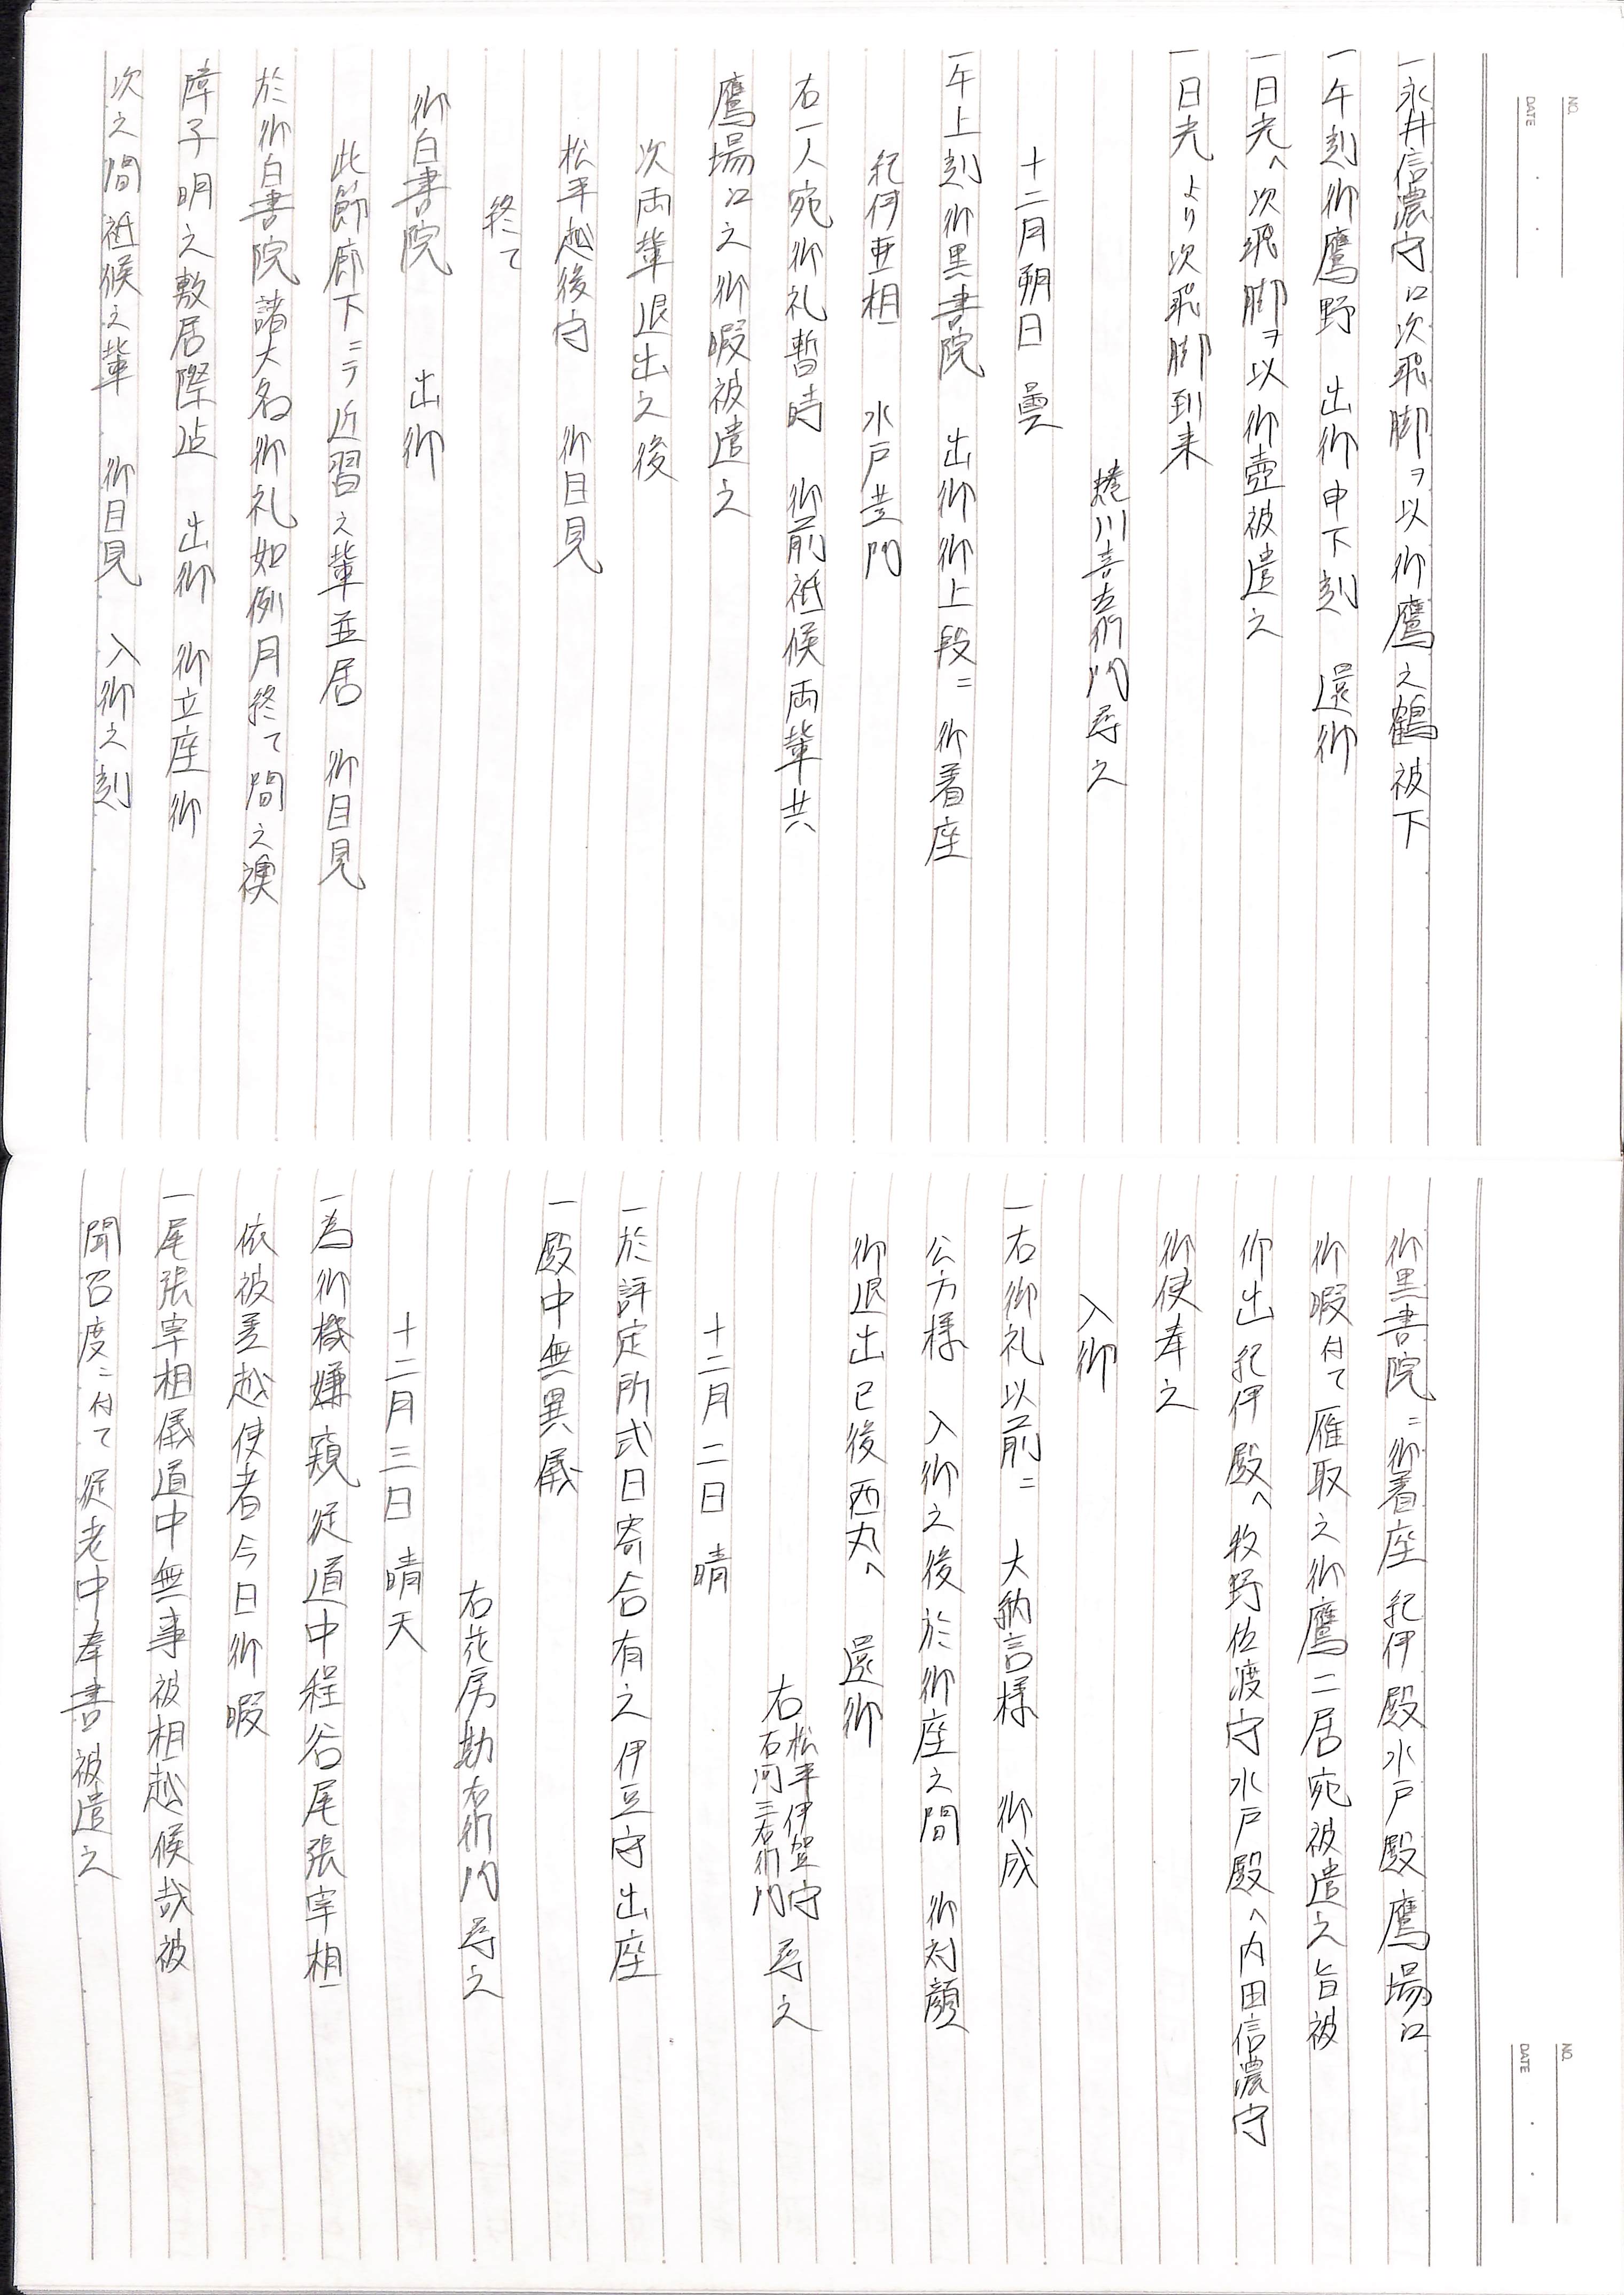 NO.
DATE
一永井信濃守江次飛脚ヲ以御鷹之鶴被下
一午刻御鷹野 出御申下刻 還御
一日光へ次飛脚ヲ以御壺被遣之
一日光より次飛脚到来
蜷川喜左衛門尋之
十二月朔日 曇
一午上刻御黒書院 出御御上段ニ御着座
紀伊亜相 水戸黄門
右一人宛御礼暫時 御前祗候両輩共
鷹場江之御暇被遣之
次両輩退出之後
松平越後守 御目見
終て
御白書院 出御
此節廊下ニテ近習之輩並居 御目見
於御白書院諸大名御礼如例月終て間之襖
障子明之敷居際迠 出御 御立座御
次之間祗候之輩 御目見 入御之刻
NO.
DATE
御黒書院ニ御着座紀伊殿水戸殿鷹場江
御暇付て雁取之御鷹二居宛被遣之旨被
仰出紀伊殿へ牧野佐渡守水戸殿へ内田信濃守
御使奉之
入御
一右御礼以前ニ 大納言様 御成
公方様 入御之後於御座之間 御対顔
御退出已後西丸へ 還御
右松平伊賀守
右河三右衛門 尋之
十二月二日 晴
一於評定所式日寄合有之伊豆守出座
一殿中無異儀
右花房勘右衛門尋之
十二月三日 晴天
一為御機嫌窺従道中程谷尾張宰相
依被差越使者今日御暇
一尾張宰相儀道中無事被相越候哉被
聞召度ニ付て従老中奉書被遣之